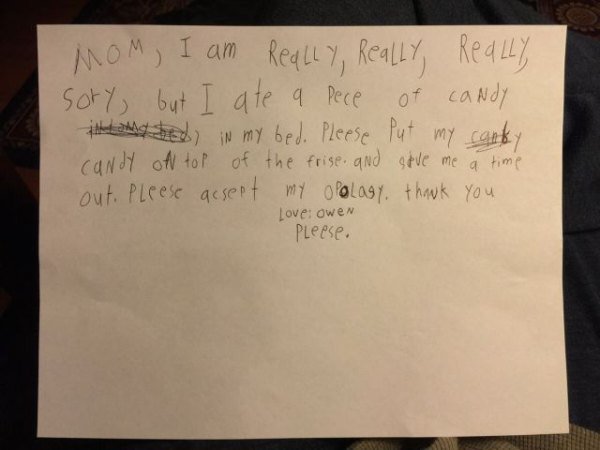 MOM, I am ReaLLY, ReaLLY, ReaLLY,
Sory, but I ate a Pece of caNdy
in my bed. Pleese Put my
caNdy oN toP of the frise. aNd give me a time
out. PLeese acsept my oPoLogy. thaNk you
Love: oweN
PLeese.